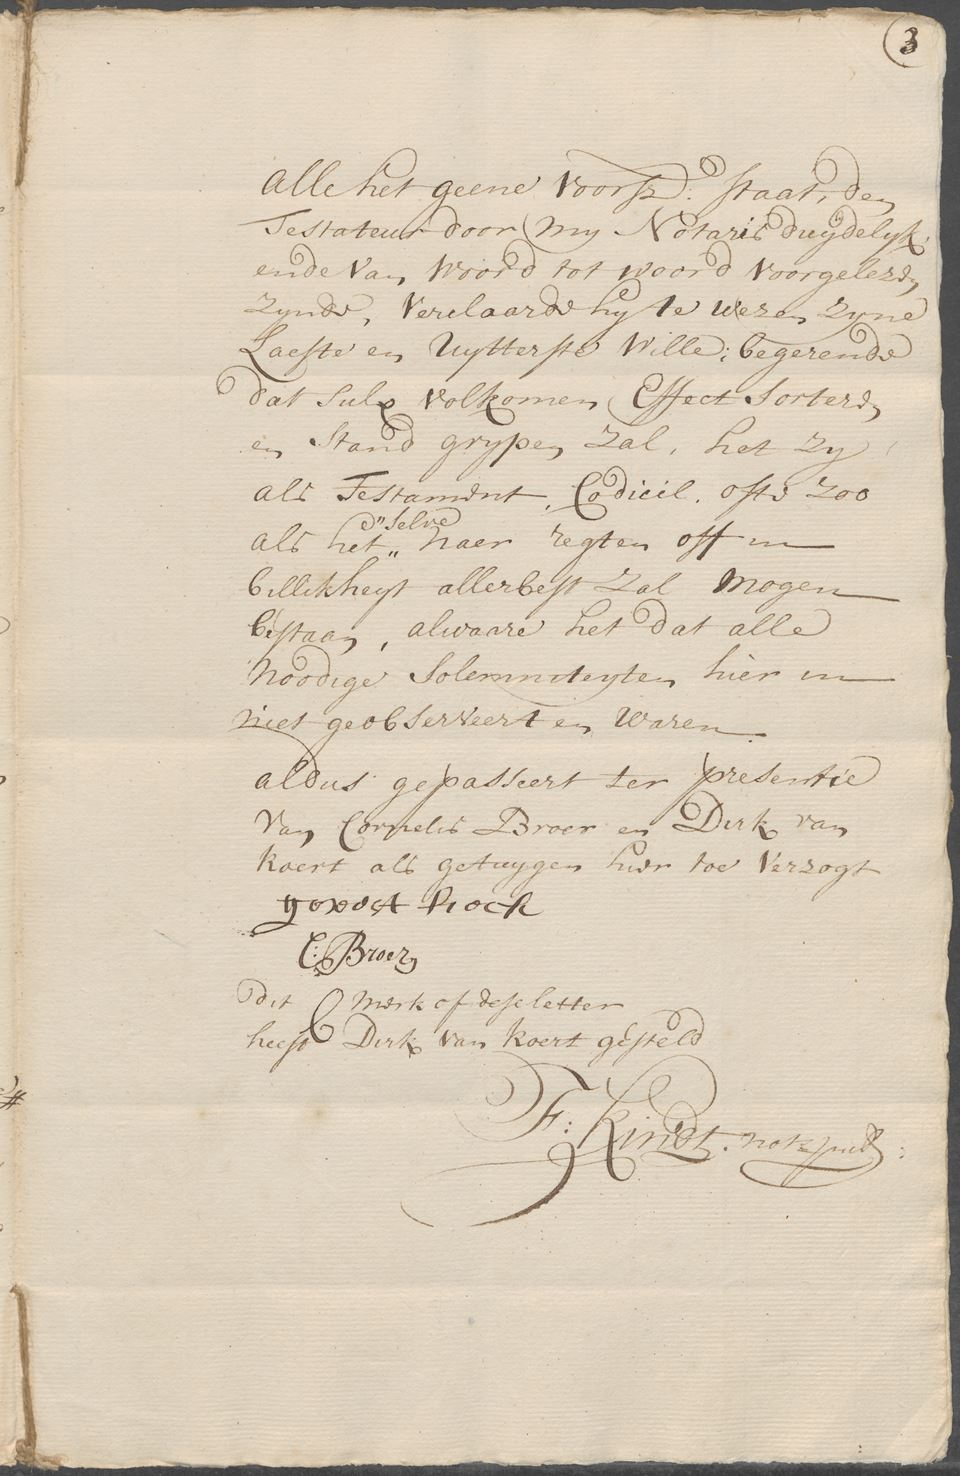 3
alle het geene voorsz: staat, den
Testateur door my Notaris duydelyk
ende van woord tot woord voorgelesen
zynde, verclaarde hy te wezen zyne
Laeste en Uytterste Wille; begerende
dat sulx volkomen Effect sorteren
en stand grypen zal, het zy
als Testament, Codicil, ofte zoo
d" selve
als het „ naer regten off in
billikheyt allerbest zal mogen
bestaan, alwaare het dat alle
noodige Solemniteyten hier in
niet geobserveert en waren.
aldus gepasseert ter presentie
van Cornelis Broer en Dirk van
koert als getuygen hier toe verzogt
C: Broer
dit merk of dese letter
heeft Dirk van koert gesteld
F: Kindt. not: pub: